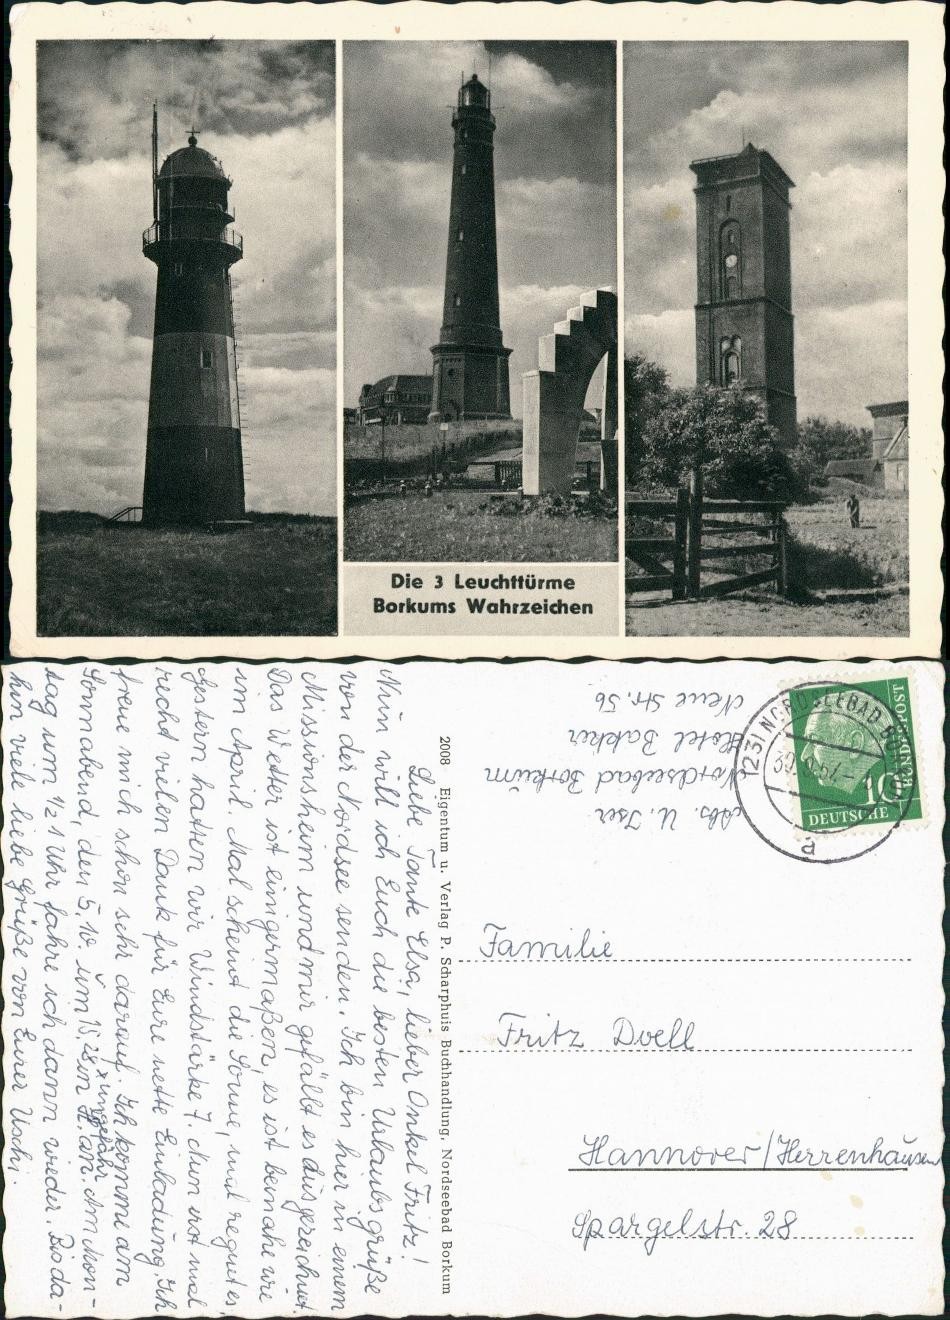 Die 3 Leuchttürme
Borkums Wahrzeichen
Liebe Tante Elsa, lieber Onkel Fritz!
Nun will ich Euch die besten Urlaubsgrüße
von der Nordsee senden. Ich bin hier in einem
Missionsheim und mir gefällt es ausgezeichnet.
Das Wetter ist einigermaßen, es ist beinahe wie
im April. Mal scheint die Sonne, mal regnet es,
gestern hatten wir Windstärke 7. Nun erst mal
recht vielen Dank für Eure nette Einladung. Ich
freue mich schon sehr darauf. Ich komme am
x ungefähr
Sonnabend, den 5.10. um 15,28 in H. an. Am Mon-
tag um 1/2 1 Uhr fahre ich dann wieder. Bis da-
hin viele liebe Grüße von Eurer Uschi.
2008 Eigentum u. Verlag P. Scharphuis Buchhandlung, Nordseebad Borkum
Abs. U. Iser
Nordseebad Borkum
Hotel Bakker
Neue Str. 56
(23) NORDSEEBAD BORKUM
30.9.57.-
a
DEUTSCHE
BUNDESPOST
10
Familie
Fritz Doell
Hannover/Herrenhausen
Spargelstr. 28